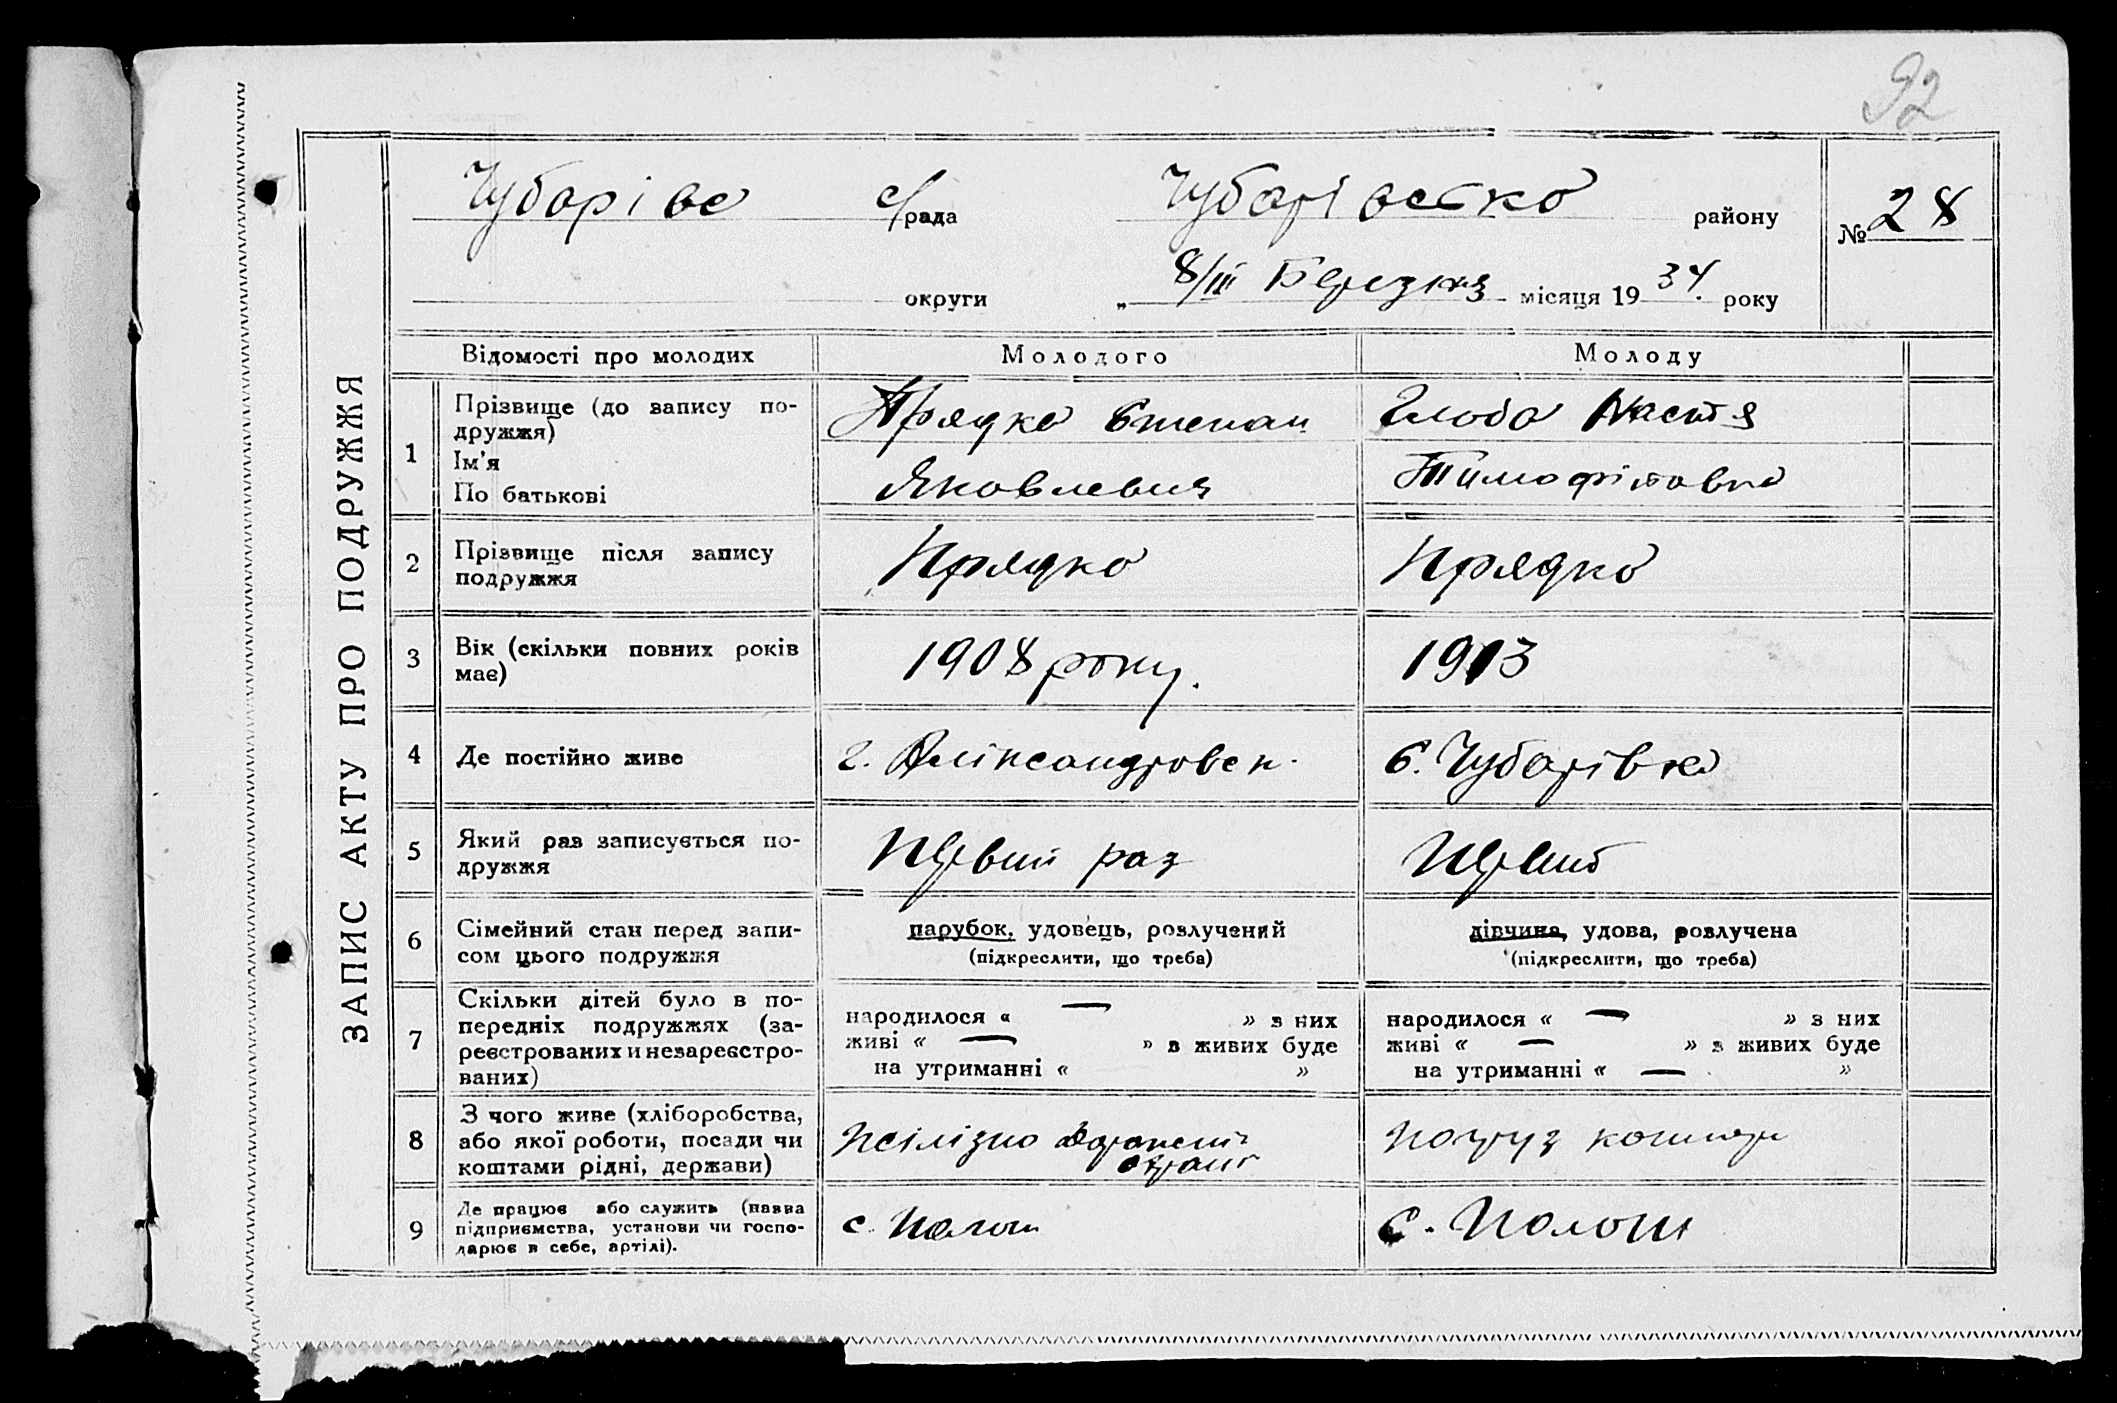 92
Чубарівс с/рада Чубарівско району № 28
округи „ 8/III Березня місяця 1934. року
ЗАПИС АКТУ ПРО ПОДРУЖЖЯ
Відомості про молодих Молодого Молоду
1 Прізвище (до запису по-
дружжя)
Ім'я
По батькові
Прядко Степан
Яковлевич
Глоба Настя
Тимофіївна
2 Прізвище після запису
подружжя
Прядко Прядко
3 Вік (скільки повних років
має)
1908 року. 1913
4 Де постійно живе г. Аліксандровск. с. Чубарівка
5 Який раз записується по-
дружжя
Первий раз Первий
6 Сімейний стан перед запи-
сом цього подружжя
парубок, удовець, розлучений
(підкреслити, що треба)
дівчина, удова, розлучена
(підкреслити, що треба)
7 Скільки дітей було в по-
передніх подружжях (за-
реєстрованих и незареєстро-
ваних)
народилося « — » з них
живі « — » з живих буде
на утриманні « »
народилося « — » з них
живі « — » з живих буде
на утриманні « — »
8 З чого живе (хліборобства,
або якої роботи, посади чи
коштами рідні, держави)
9 Де працює або служить (назва
підприємства, установи чи госпо-
дарює в себе, артілі).
с. Пологи с. Пологи